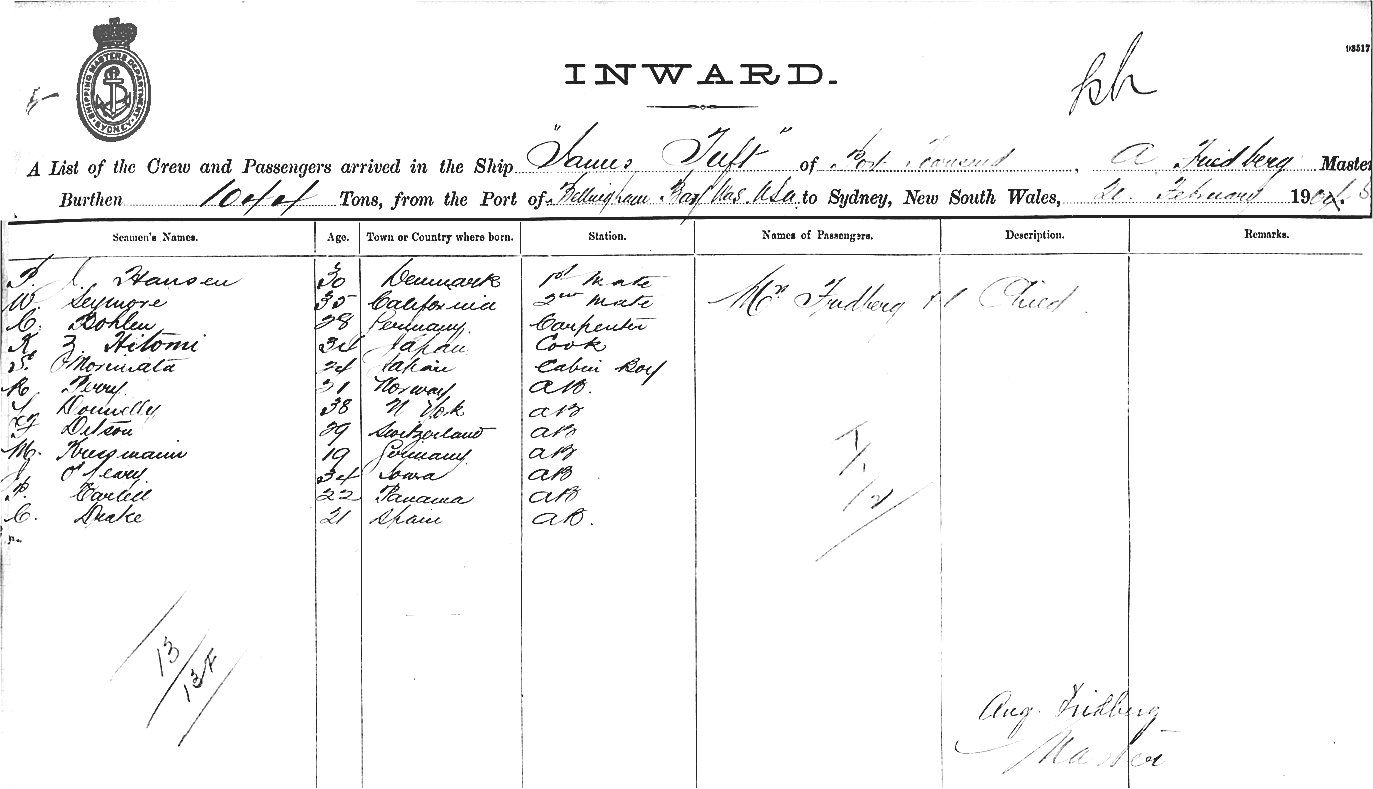 SHIPPING MASTERS DEPARTMENT SYDNEY
93517
INWARD.
A List of the Crew and Passengers arrived in the Ship "James Tuft" of Port Townsend, A Fridberg Master
Burthen 1044 Tons, from the Port of Bellingham Bay Was. USA to Sydney, New South Wales, February 190
Seamen's Names. Age. Town or Country where born. Station. Names of Passengers. Description. Remarks.
P. Hansen 30 Denmark 1st Mate
W. Seymore 35 California 2nd Mate Mrs Fridberg + 1 Child
C. Bohlen 28 Germany. Carpenter
K Z Hitomi 34 Japan Cook
S. Morimata 24 Japan Cabin Boy
R. Perry. 31 Norway AB.
Donnelly 38 N York AB
Ditson 29 Switzerland AB
M. Krugmann 19 Germany AB
J O'Leary. 34 Iowa AB
P. 22 Panama AB
C. Drake 21 Spain AB.
1/1/2/
13/13F
Aug. Fridberg
Master